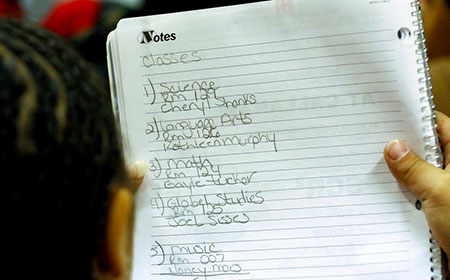 Notes
Classes
1) Science
Rm 129
Cheryl Shanks
2) Language Arts
Rm 126
Kathleen Murphy
3) Math
Rm 124
Gayle Tucker
4) Global Studies
Rm 125
Joel
5) Music
Rm 007
Nancy